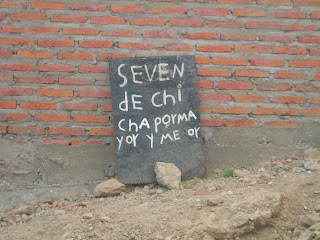 SEVEN
de chi
cha porma
yor y me or